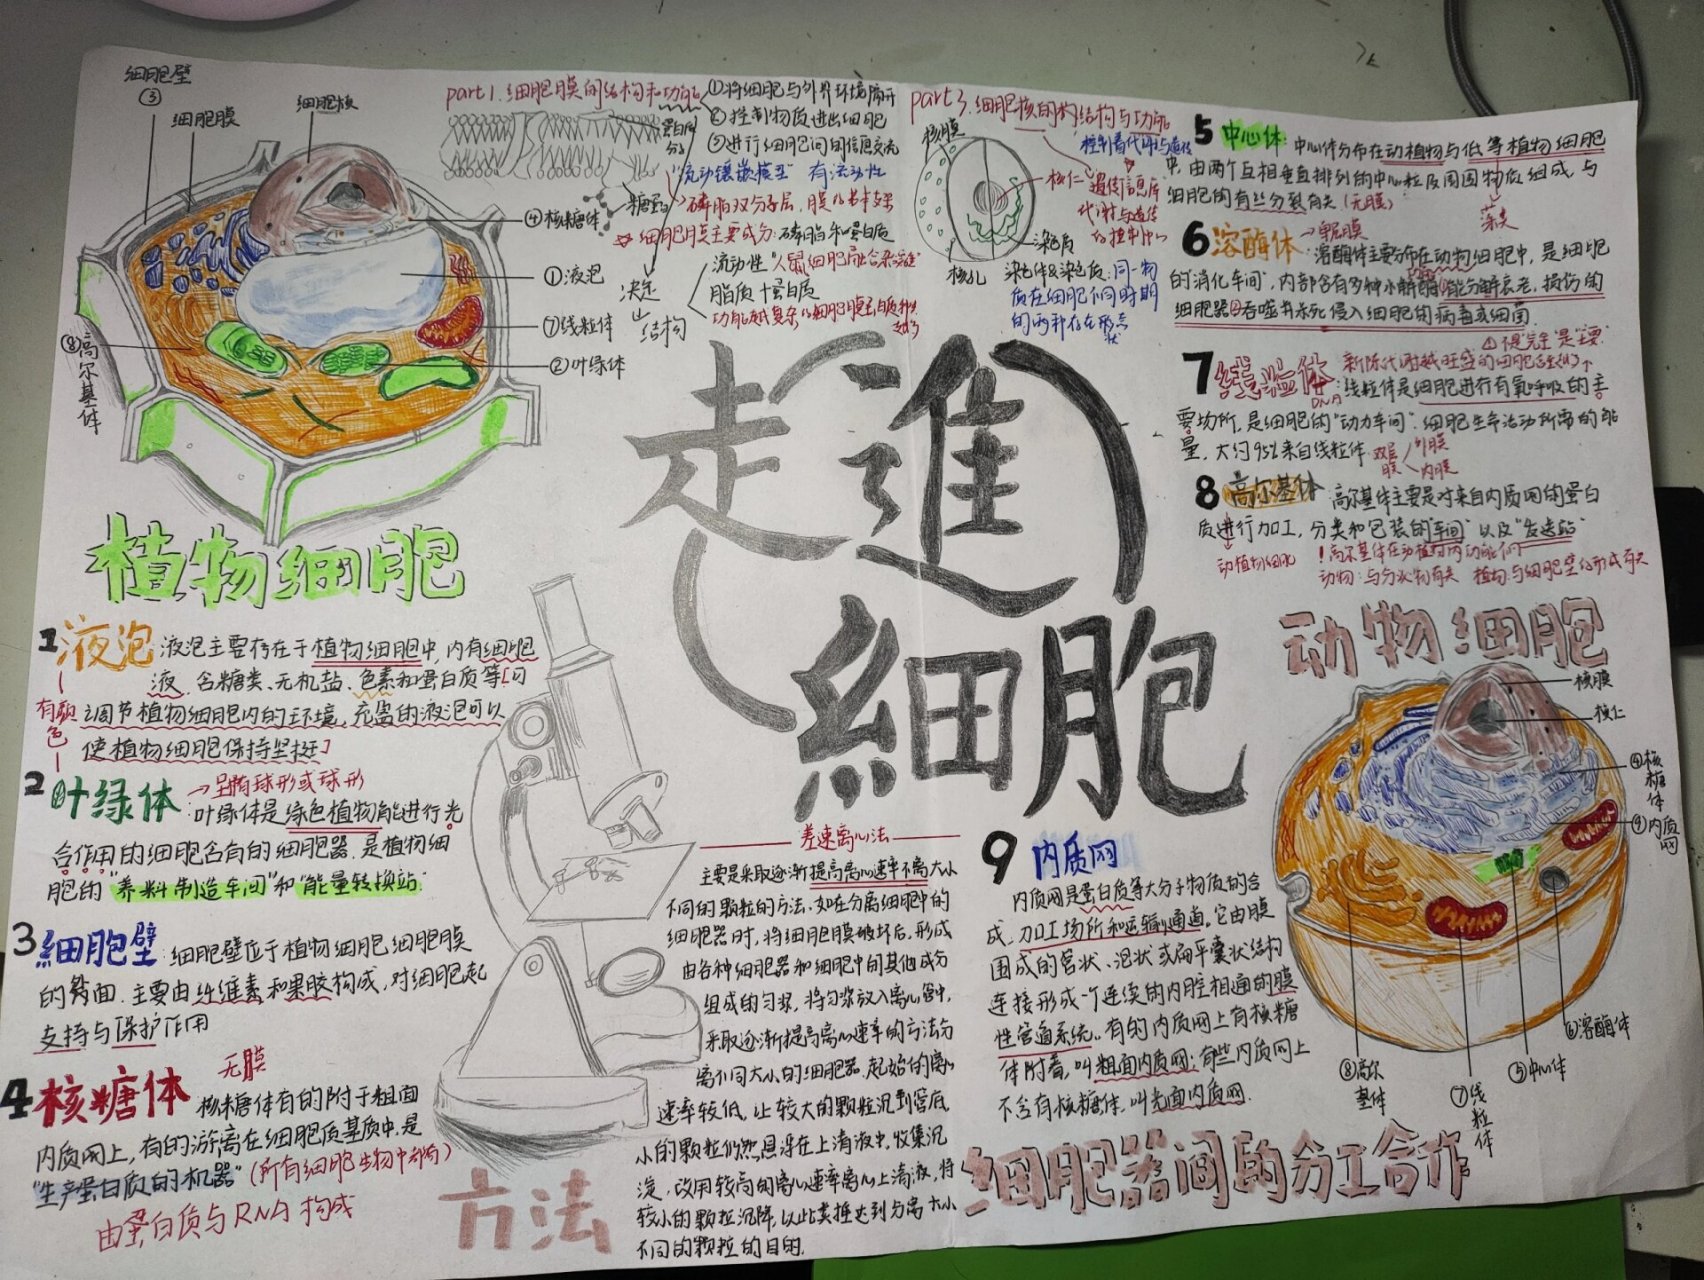 细胞壁
③
细胞膜
细胞核
④核糖体
①液泡
⑦线粒体
②叶绿体
⑧高尔基体
植物细胞
part1.细胞膜的结构和功能
①将细胞与外界环境隔开
②控制物质进出细胞
③进行细胞间的信息交流
蛋白质分子
"流动镶嵌模型" 有流动性
糖蛋白
磷脂双分子层,膜的基本支架
细胞膜主要成分:磷脂和蛋白质
流动性"人鼠细胞融合实验"
决定
脂质+蛋白质
结构
功能越复杂的细胞膜蛋白质种类越多
part3.细胞核的结构与功能
核膜
控制着代谢与遗传
核仁
遗传信息库
代谢与遗传
的控制中心
染色质
核孔
染色体&染色质:同一物
质在细胞不同时期
的两种存在形态
状
走進
細胞
1 液泡 液泡主要存在于植物细胞中,内有细胞
液,含糖类、无机盐、色素和蛋白质等[可
有颜色
调节植物细胞内的环境,充盈的液泡可以
使植物细胞保持坚挺]
2 叶绿体 →呈椭球形或球形
:叶绿体是绿色植物能进行光
合作用的细胞含有的细胞器,是植物细
胞的"养料制造车间"和"能量转换站"
3 細胞壁:细胞壁位于植物细胞细胞膜
的外面,主要由纤维素和果胶构成,对细胞起
支持与保护作用
4 核糖体 无膜
核糖体有的附于粗面
内质网上,有的游离在细胞质基质中,是
"生产蛋白质的机器"(所有细胞生物中都有)
由蛋白质与RNA构成
方法
差速离心法
主要是采取逐渐提高离心速率不离大小
不同的颗粒的方法.如在分离细胞中的
细胞器时,将细胞膜破坏后,形成
由各种细胞器和细胞中的其他成分
组成的匀浆,将匀浆放入离心管中,
采取逐渐提高离心速率的方法分
离不同大小的细胞器.起始的离心
速率较低,让较大的颗粒沉到管底,
小的颗粒仍然悬浮在上清液中,收集沉
淀,改用较高的离心速率离心上清液,将
较小的颗粒沉降,以此类推达到分离大小
不同的颗粒的目的.
5 中心体:中心体分布在动植物与低等植物细胞
中,由两个互相垂直排列的中心粒及周围物质组成,与
细胞的有丝分裂有关(无膜)
藻类
6 溶酶体→单层膜
:溶酶体主要分布在动物细胞中,是细胞
的"消化车间",内部含有多种水解酶①能分解衰老、损伤的
细胞器②吞噬并杀死侵入细胞的病毒或细菌
⚠不是"完全"是"主要"
7 线粒体 新陈代谢越旺盛的细胞含量(线)↑
DNA
:线粒体是细胞进行有氧呼吸的主
要场所,是细胞的"动力车间".细胞生命活动所需的能
量,大约95%来自线粒体.
双层膜
外膜
内膜
8 高尔基体 高尔基体主要是对来自内质网的蛋白
质进行加工,分类和包装的"车间"以及"发送站"
动植物细胞
!高尔基体在动植物内功能不同
动物:与分泌物有关 植物:与细胞壁的形成有关
动物细胞
核膜
核仁
④核糖体
⑨内质网
⑥溶酶体
⑤中心体
⑦线粒体
⑧高尔基体
9 内质网
内质网是蛋白质等大分子物质的合
成,加工场所和运输通道。它由膜
围成的管状、泡状或扁平囊状结构
连接形成一个连续的内腔相通的膜
性管道系统..有的内质网上有核糖
体附着,叫粗面内质网;有些内质网上
不含有核糖体,叫光面内质网.
细胞器间的分工合作